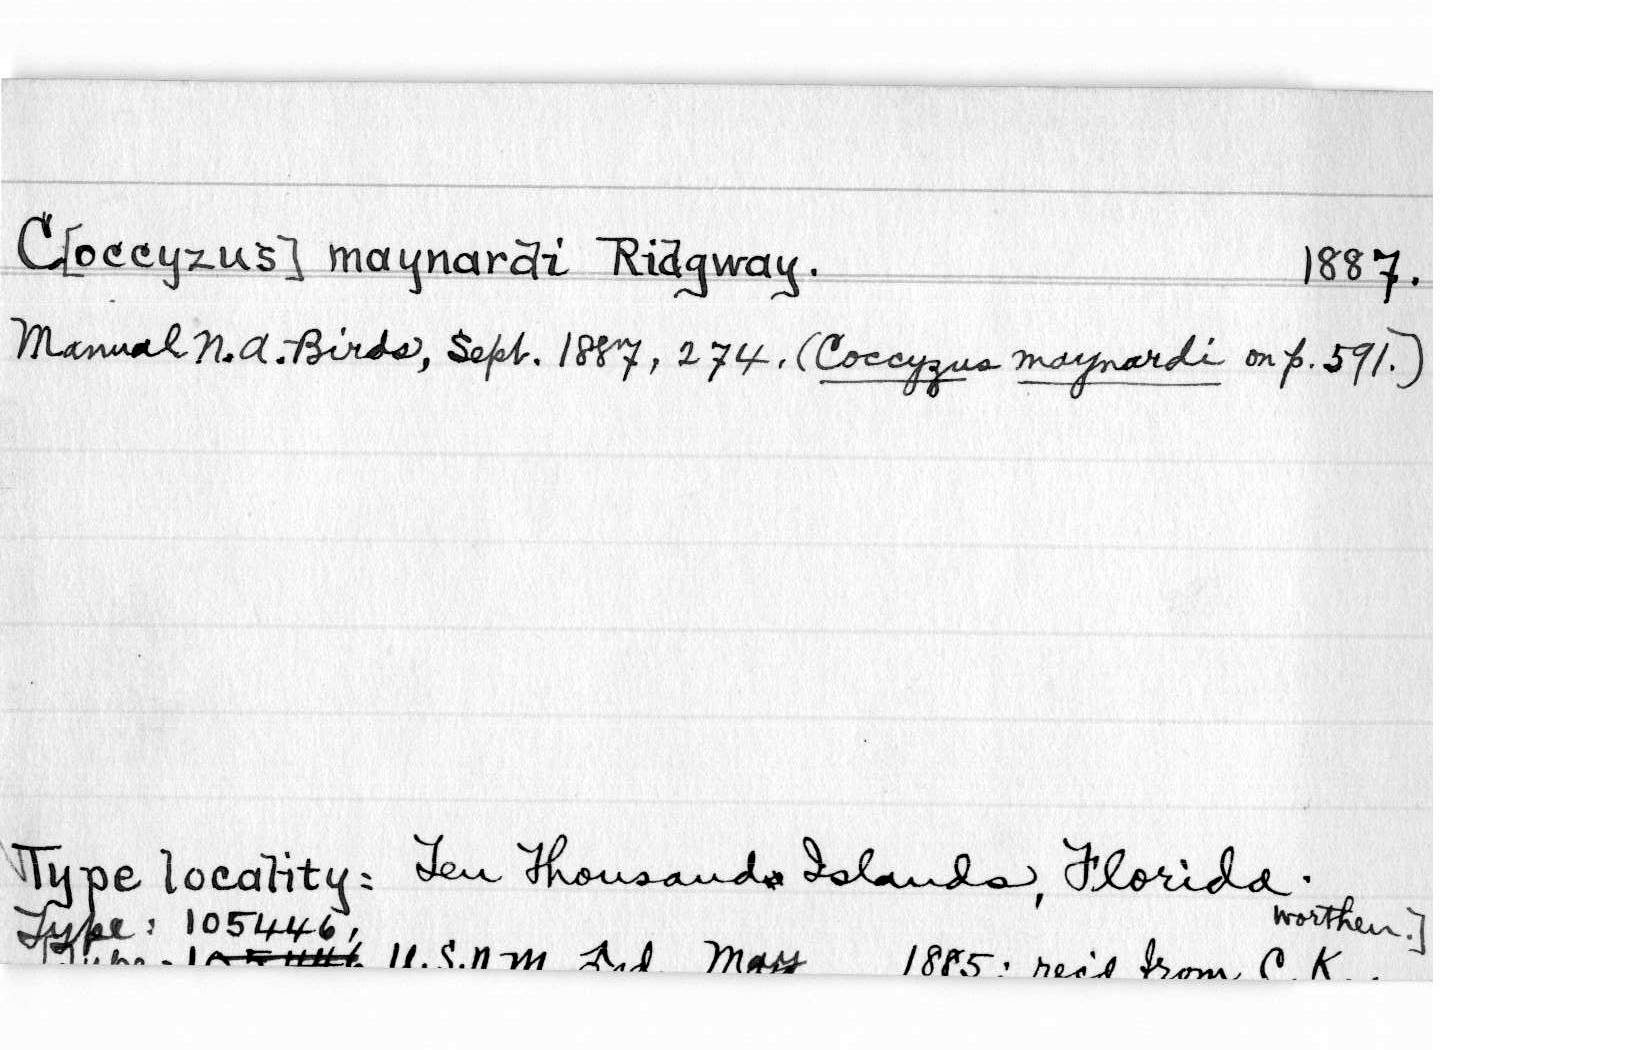 C[occyzus] maynardi Ridgway. 1887.
Manual N.A. Birds, Sept. 1887, 274. (Coccyzus maynardi on p. 591.)
Type locality: Ten Thousand Islands, Florida.
Worthen.]
Type: 105446,
Type: 105446 U.S.N.M. 1885; rec'd from C.K.